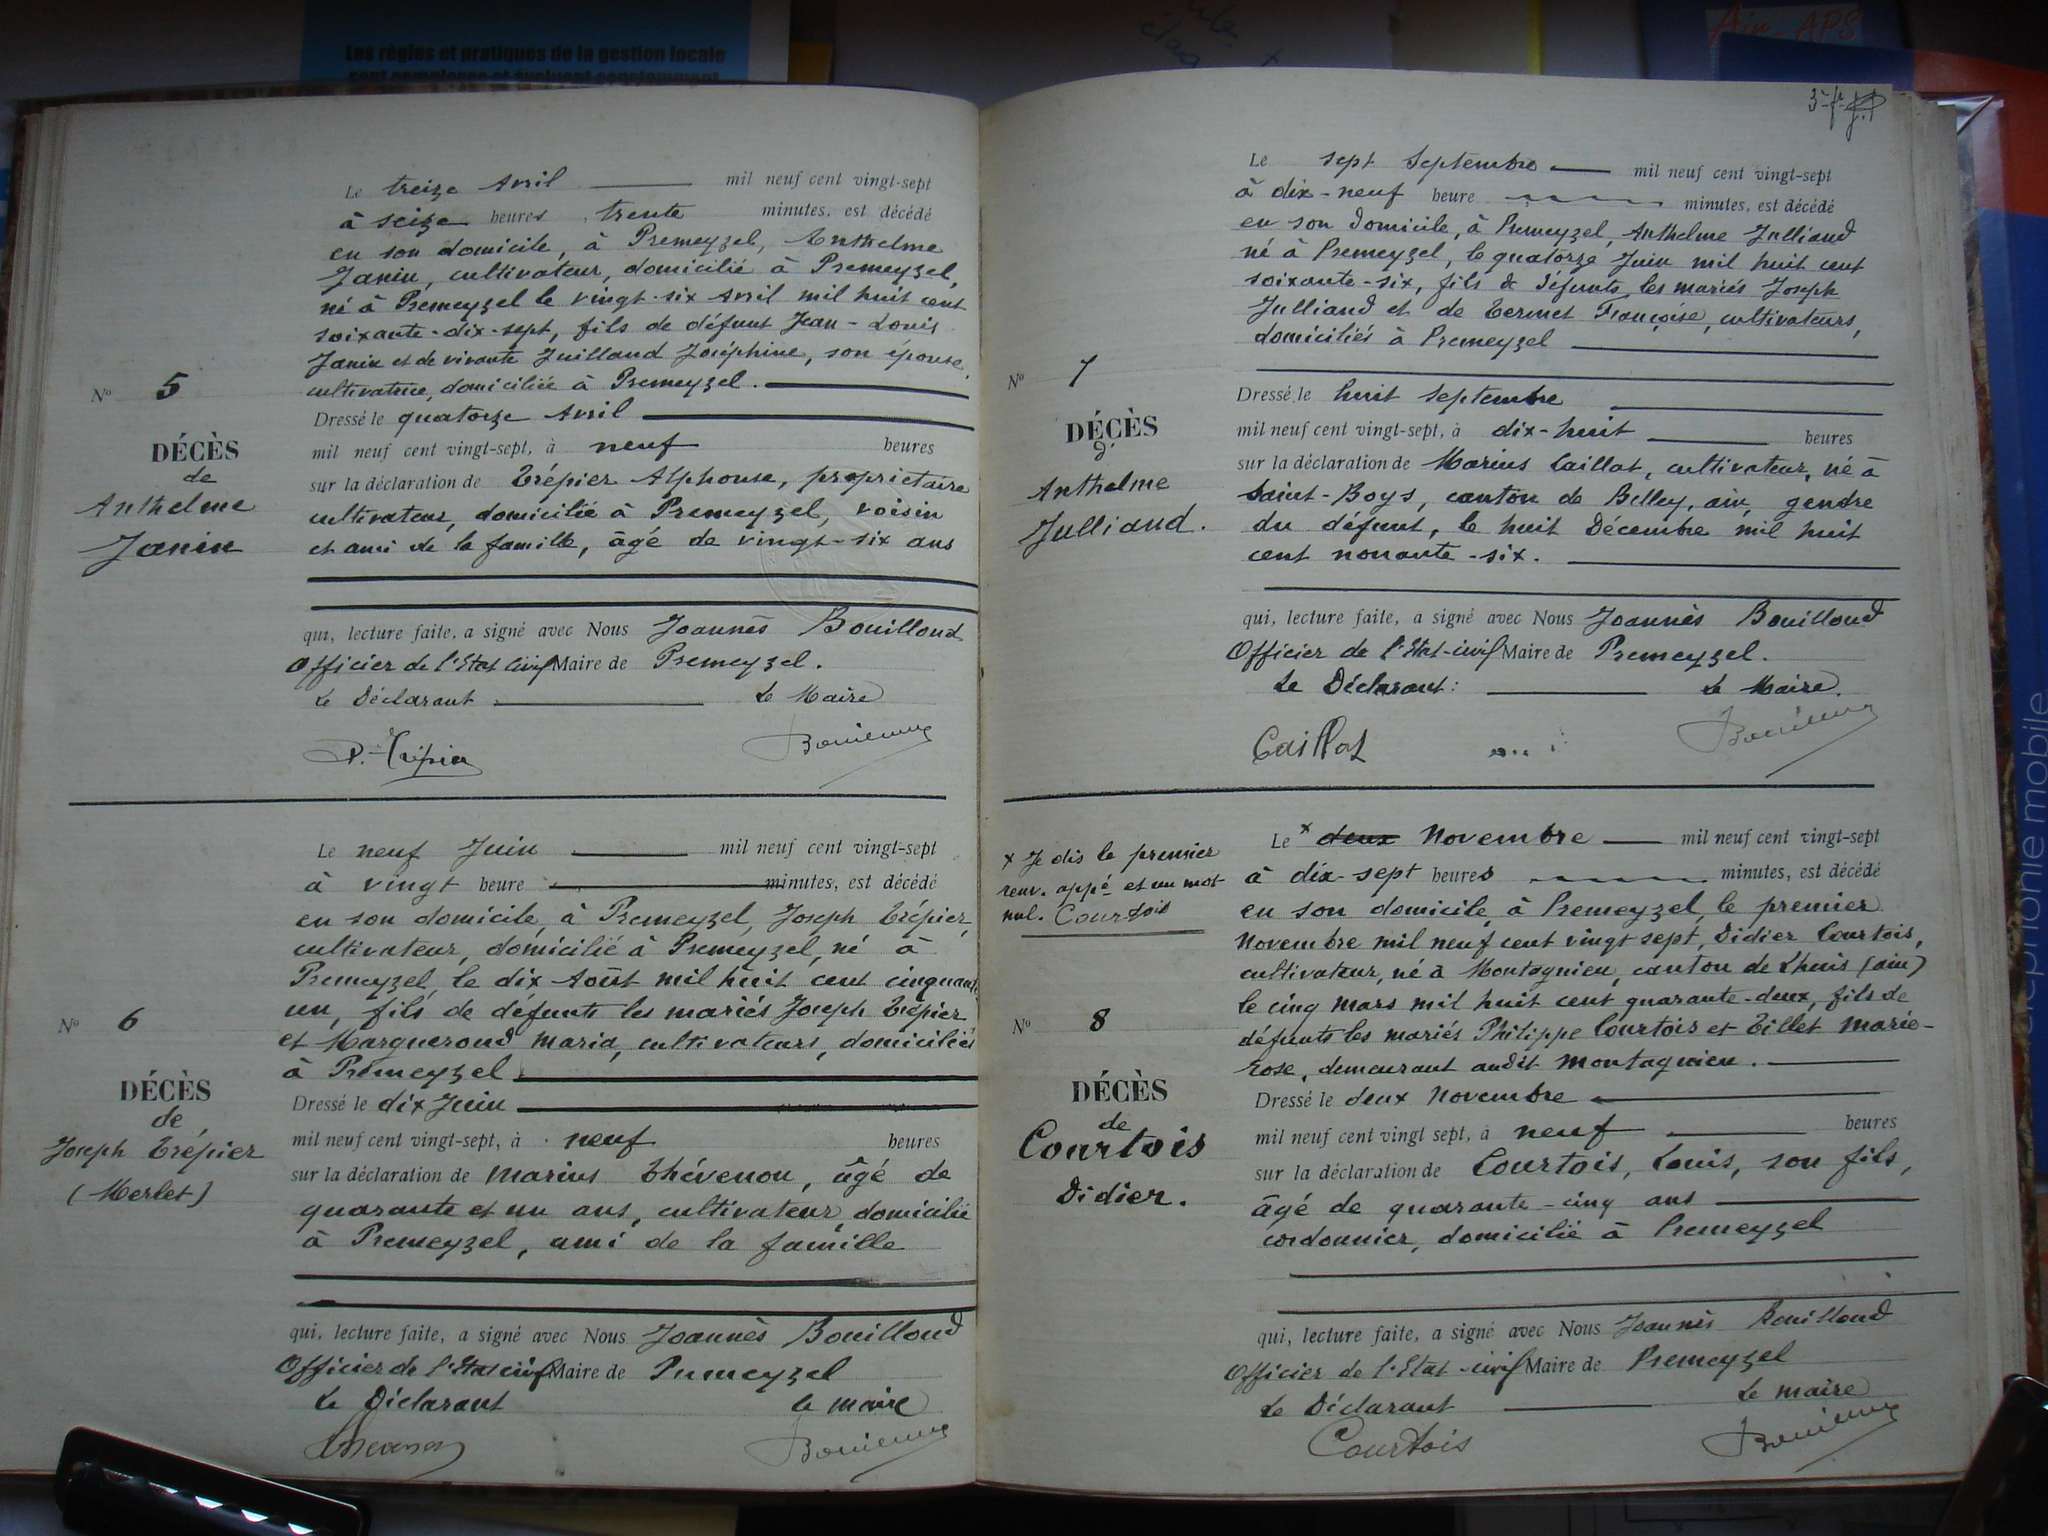 Les règles et pratiques de la gestion locale
sont complexes et évoluent constamment
Ain APS
téléphonie mobile
Le treize Avril mil neuf cent vingt-sept
à seize heures trente minutes, est décédé
en son domicile, à Premeyzel, Anthelme
Janin, cultivateur, domicilié à Premeyzel,
né à Premeyzel le vingt-six Avril mil huit cent
soixante-dix-sept, fils de défunt Jean-Louis
Janin et de vivante Juilland Joséphine, son épouse,
cultivatrice, domiciliée à Premeyzel.
No 5
DÉCÈS
de
Anthelme
Janin
Dressé le quatorze Avril
mil neuf cent vingt-sept, à neuf heures
sur la déclaration de Trépier Alphonse, propriétaire
cultivateur, domicilié à Premeyzel, voisin
et ami de la famille, âgé de vingt-six ans
qui, lecture faite, a signé avec Nous Joannès Bouilloud
Officier de l'Etat civil Maire de Premeyzel.
Le Déclarant Le Maire
Trépier
Le neuf Juin mil neuf cent vingt-sept
à vingt heure minutes, est décédé
en son domicile, à Premeyzel, Joseph Trépier,
cultivateur, domicilié à Premeyzel, né à
Premeyzel, le dix Août mil huit cent cinquante
un, fils de défunts les mariés Joseph Trépier
et Marguerond Maria, cultivateurs, domiciliés
à Premeyzel.
No 6
DÉCÈS
de
Joseph Trépier
(Merlet)
Dressé le dix Juin
mil neuf cent vingt-sept, à neuf heures
sur la déclaration de Marius Thévenon, âgé de
quarante et un ans, cultivateur domicilié
à Premeyzel, ami de la famille
qui, lecture faite, a signé avec Nous Joannès Bouilloud
Officier de l'Etat civil Maire de Premeyzel
Le Déclarant le maire
Thevenon
Le sept Septembre mil neuf cent vingt-sept
à dix-neuf heure minutes, est décédé
en son domicile, à Premeyzel, Anthelme Julliand
né à Premeyzel, le quatorze Juin mil huit cent
soixante-six, fils de défunts les mariés Joseph
Julliand et de Termet Françoise, cultivateurs,
domiciliés à Premeyzel
No 7
DÉCÈS
d'
Anthelme
Julliand.
Dressé le huit Septembre
mil neuf cent vingt-sept, à dix-huit heures
sur la déclaration de Marius Caillat, cultivateur, né à
Saint-Boys, canton de Belley, ain, gendre
du défunt, le huit Décembre mil huit
cent nonante-six.
qui, lecture faite, a signé avec Nous Joannès Bouilloud
Officier de l'Etat-civil Maire de Premeyzel.
Le Déclarant: Le Maire.
Caillat
Le x deux Novembre mil neuf cent vingt-sept
à dix-sept heures minutes, est décédé
en son domicile, à Premeyzel, le premier
Novembre mil neuf cent vingt sept, Didier Courtois,
cultivateur, né à Montagnieu, canton de Lhuis (ain)
le cinq Mars mil huit cent quarante-deux, fils de
défunts les mariés Philippe Courtois et Tillet Marie-
rose, demeurant audit Montagnieu.
x Je dis le premier
renv. appé et un mot
nul. Courtois
No 8
DÉCÈS
de
Courtois
Didier.
Dressé le deux Novembre
mil neuf cent vingt sept, à neuf heures
sur la déclaration de Courtois, Louis, son fils,
âgé de quarante-cinq ans
cordonnier, domicilié à Premeyzel
qui, lecture faite, a signé avec Nous Joannès Bouilloud
Officier de l'Etat-civil Maire de Premeyzel
Le Déclarant Le maire
Courtois